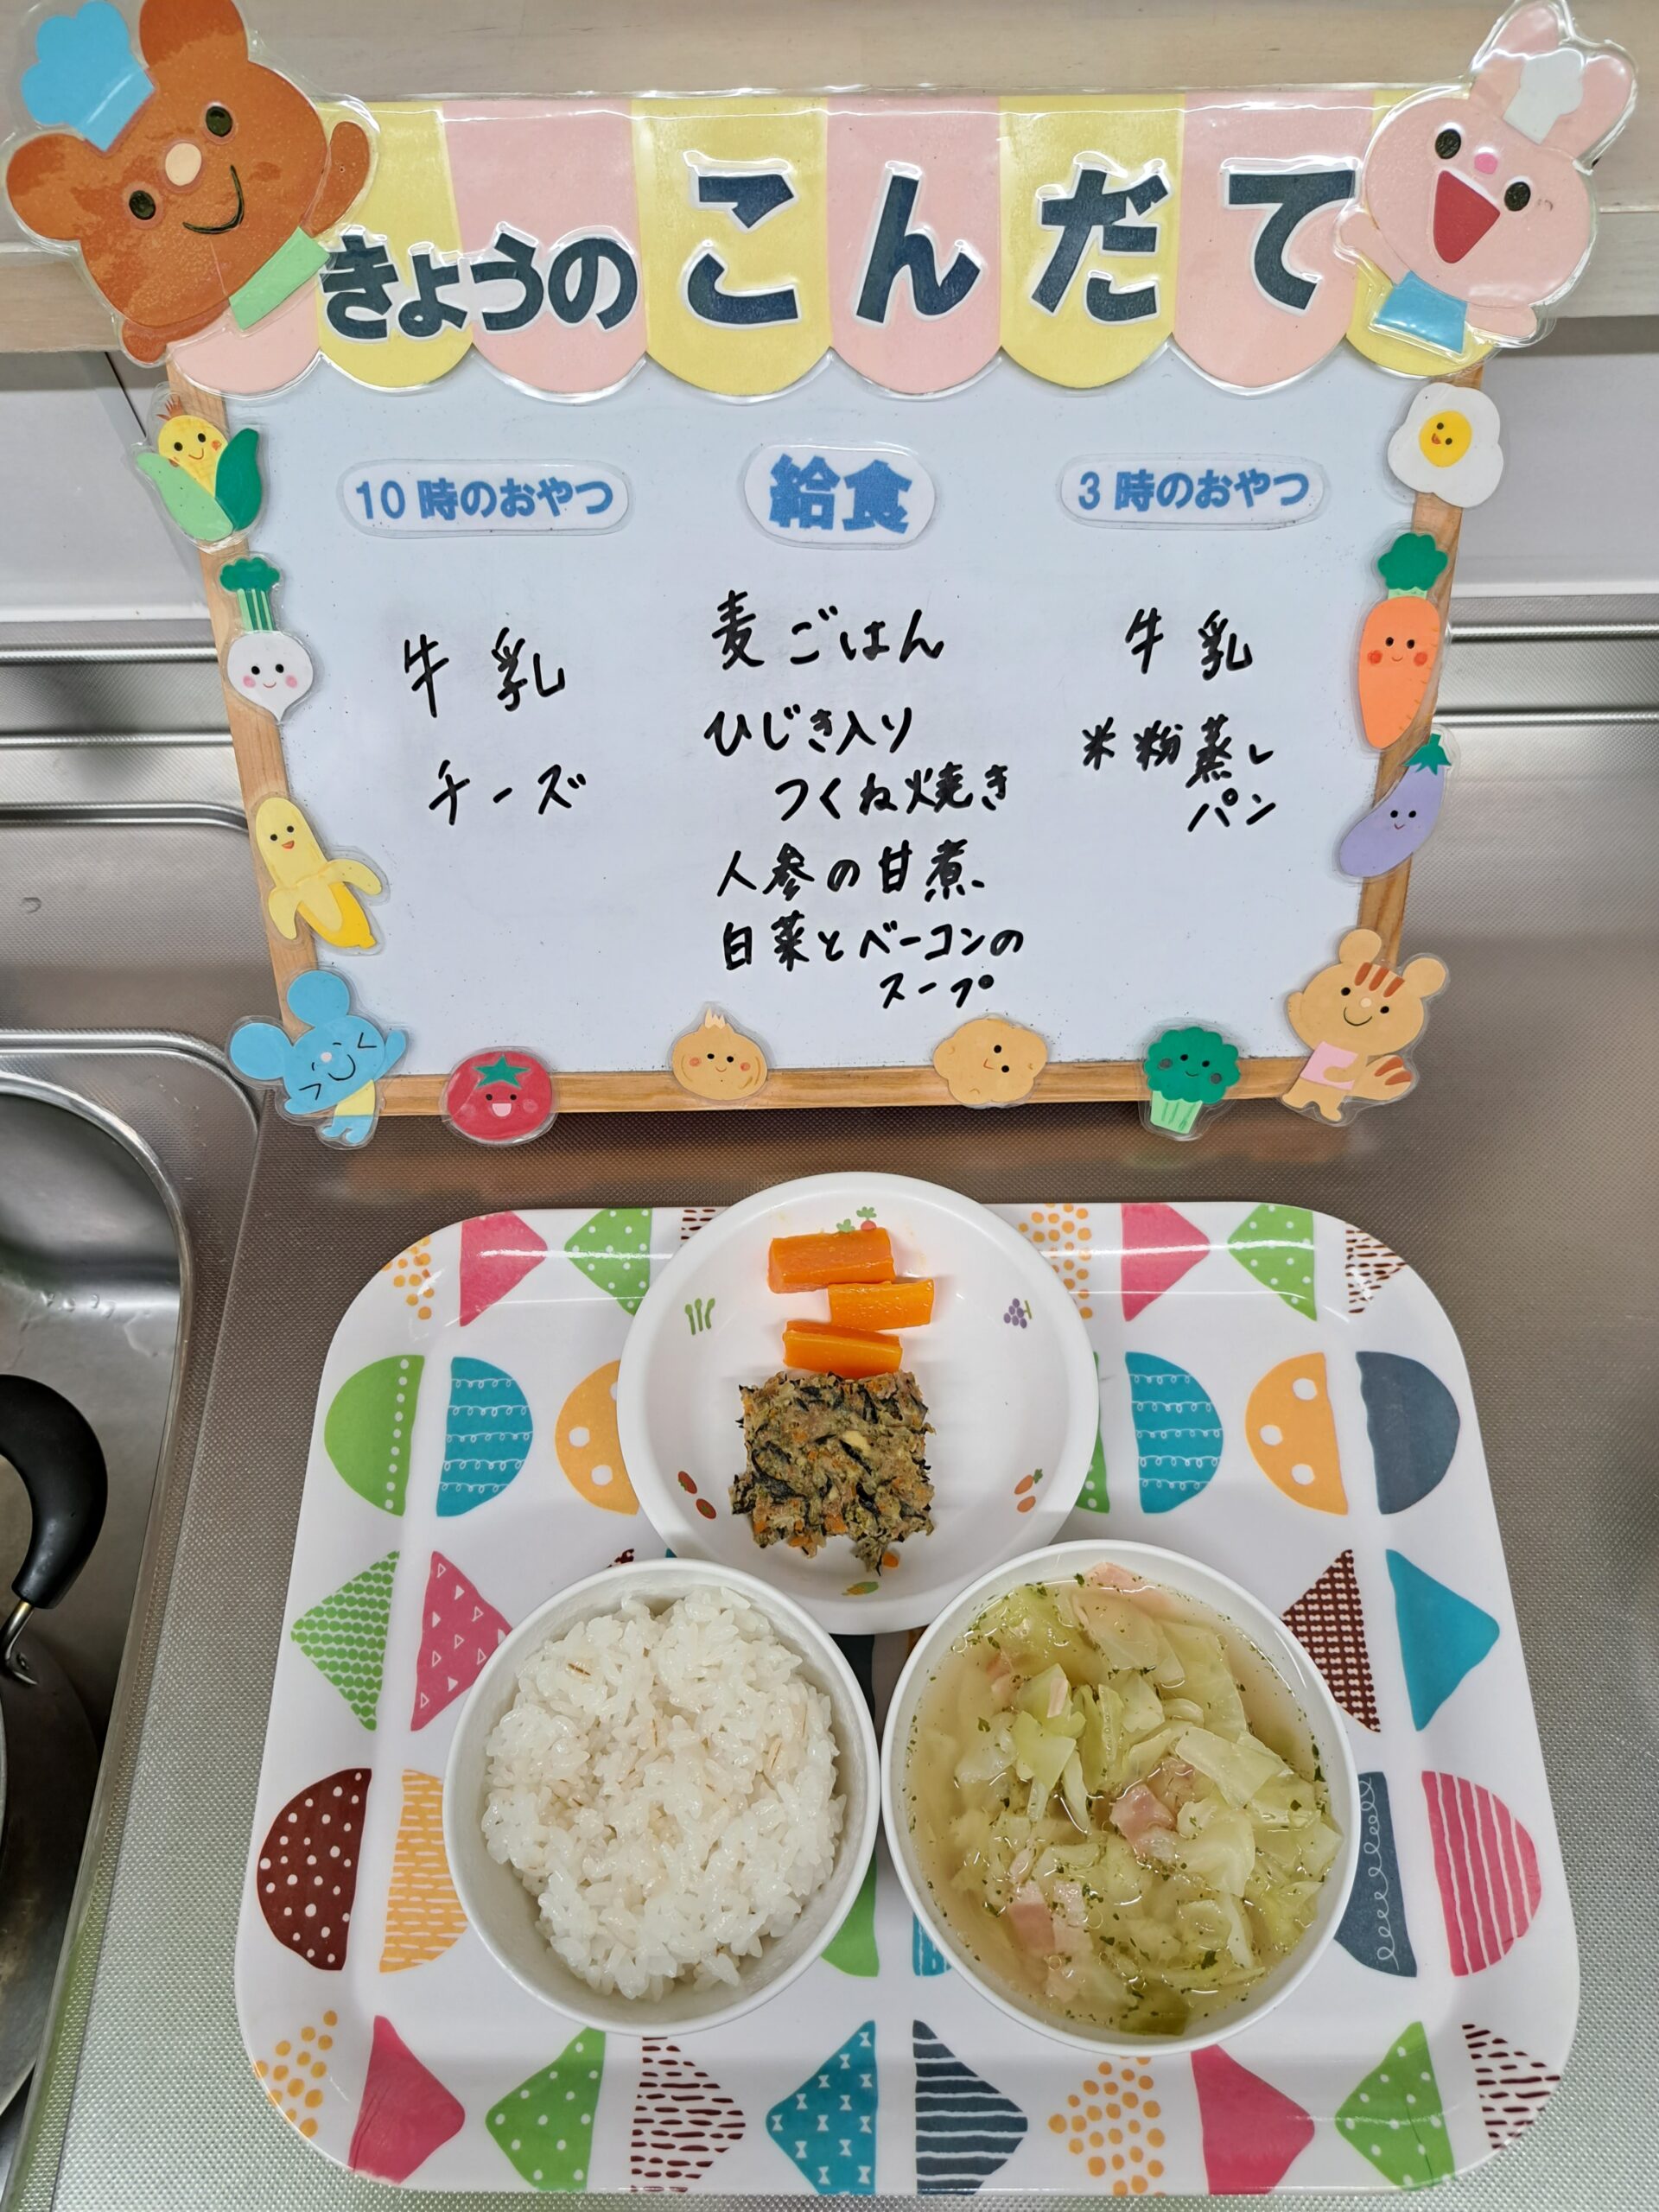 きょうの こんだて
10時のおやつ
牛乳
チーズ
給食
麦ごはん
ひじき入り
つくね焼き
人参の甘煮
白菜とベーコンの
スープ
3時のおやつ
牛乳
米粉蒸し
パン